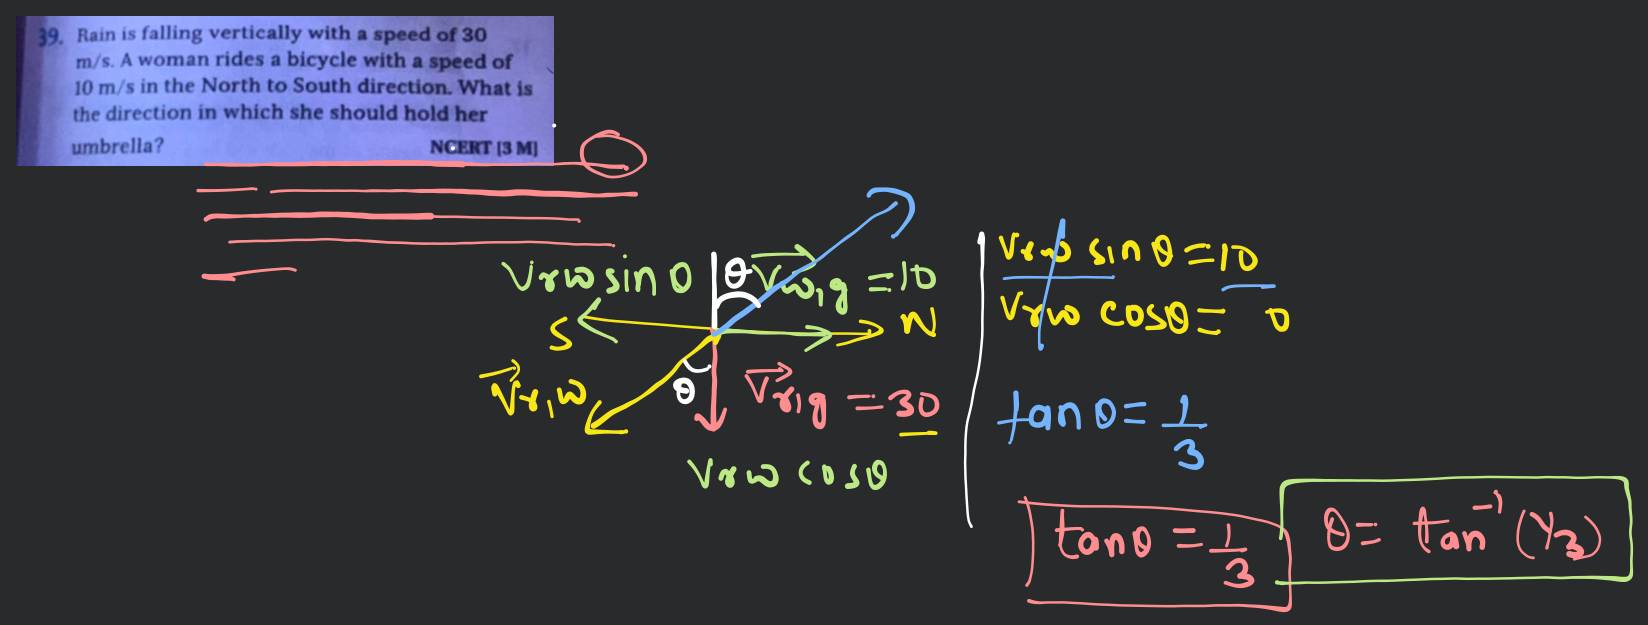 39. Rain is falling vertically with a speed of 30
m/s. A woman rides a bicycle with a speed of
10 m/s in the North to South direction. What is
the direction in which she should hold her
umbrella? NCERT [3 M]
Vrw sin θ
θ
Vw,g = 10
S
N
Vr,w
θ
Vr,g = 30
Vrw cosθ
Vrw sin θ = 10
Vrw cosθ = 0
tan θ = 1/3
tanθ = 1/3
θ = tan⁻¹ (1/3)